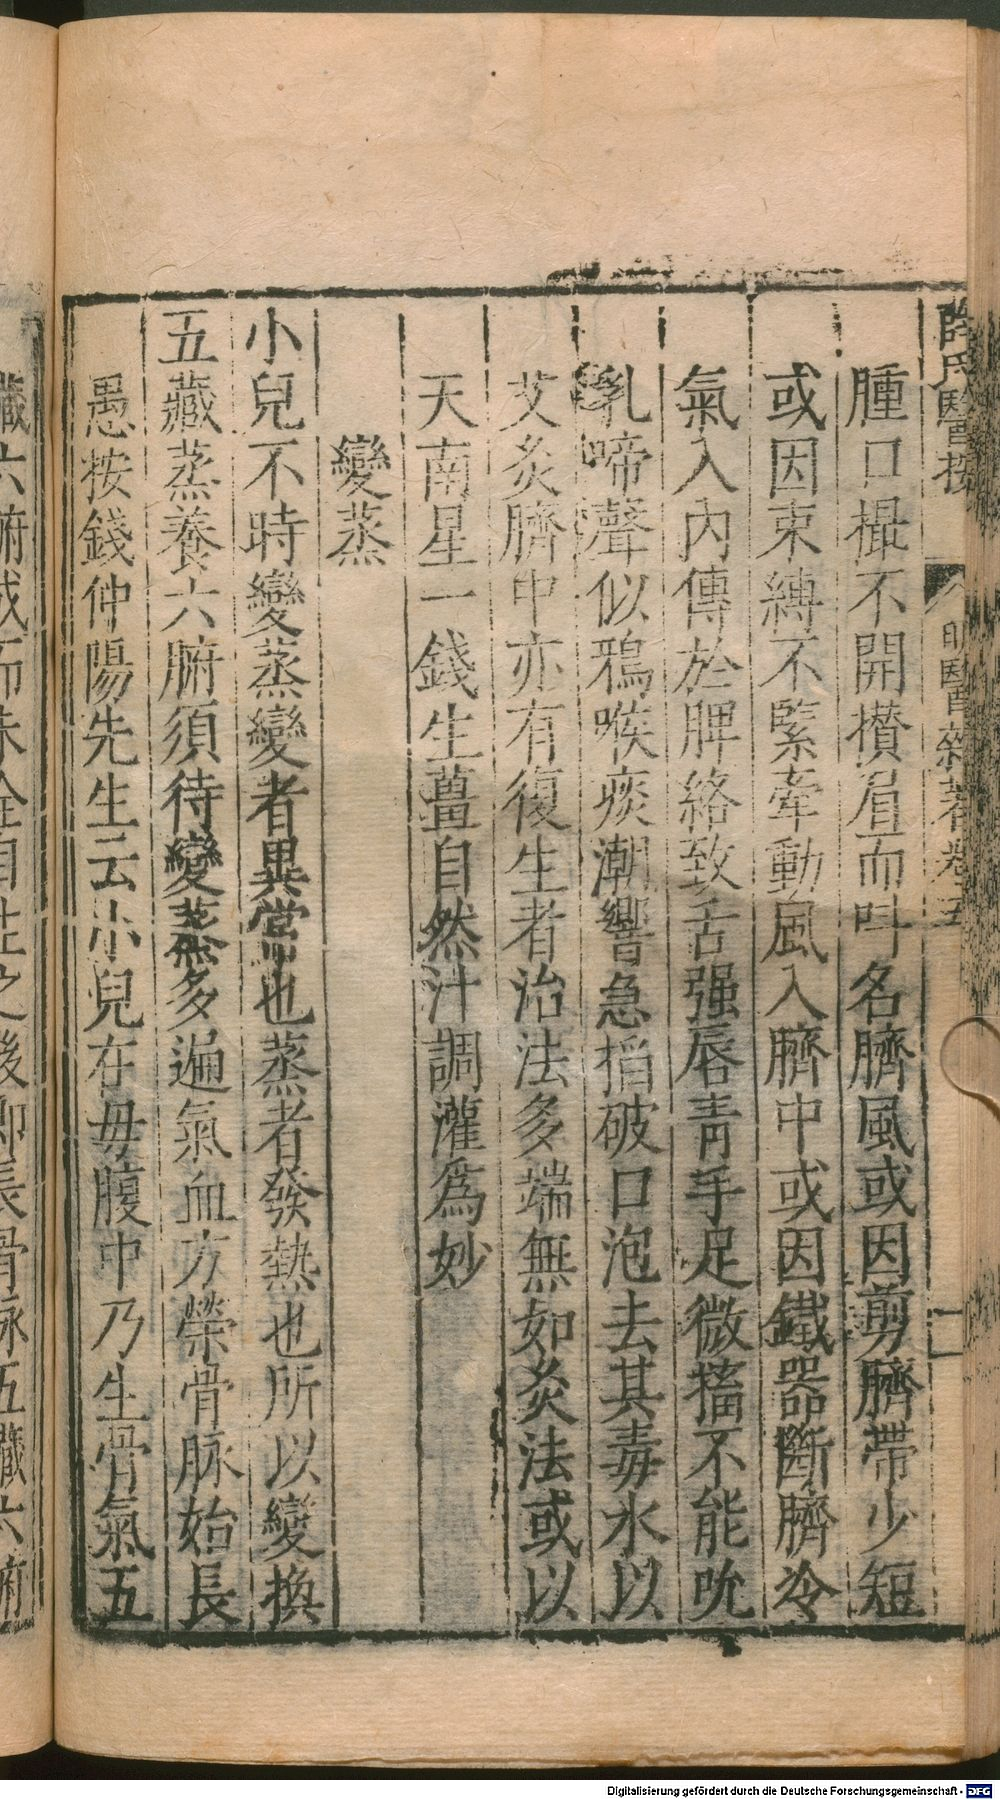 薛氏醫按
明醫雜著卷五
腫口撮不開攅眉而叫名臍風或因剪臍帶少短
或因束縛不緊牽動風入臍中或因鐵器斷臍冷
氣入內傳於脾絡致舌强唇青手足微搐不能吮
乳啼聲似鴉喉痰潮響急搯破口泡去其毒水以
艾灸臍中亦有復生者治法多端無如灸法或以
天南星一錢生薑自然汁調灌爲妙
變蒸
小兒不時變蒸變者異常也蒸者發熱也所以變換
五藏蒸養六腑須待變蒸多遍氣血方榮骨脉始長
愚按錢仲陽先生云小兒在母腹中乃生骨氣五
臟六腑成而未全自生之後即長骨脉五臟六腑
Digitalisierung gefördert durch die Deutsche Forschungsgemeinschaft - DFG